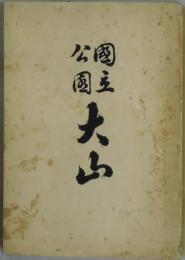 國立
公園
大山